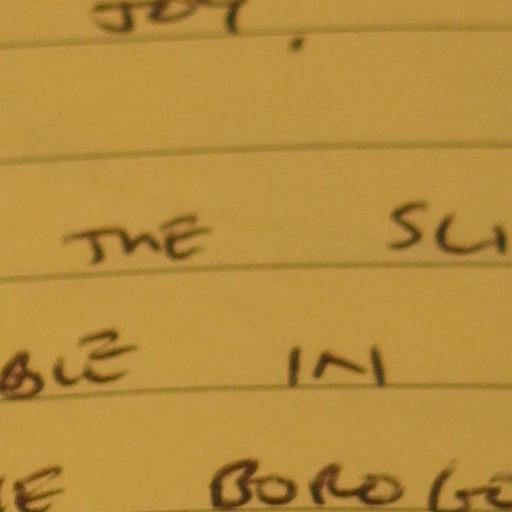 JOY.
THE SLI
BLE IN
E BOROGO